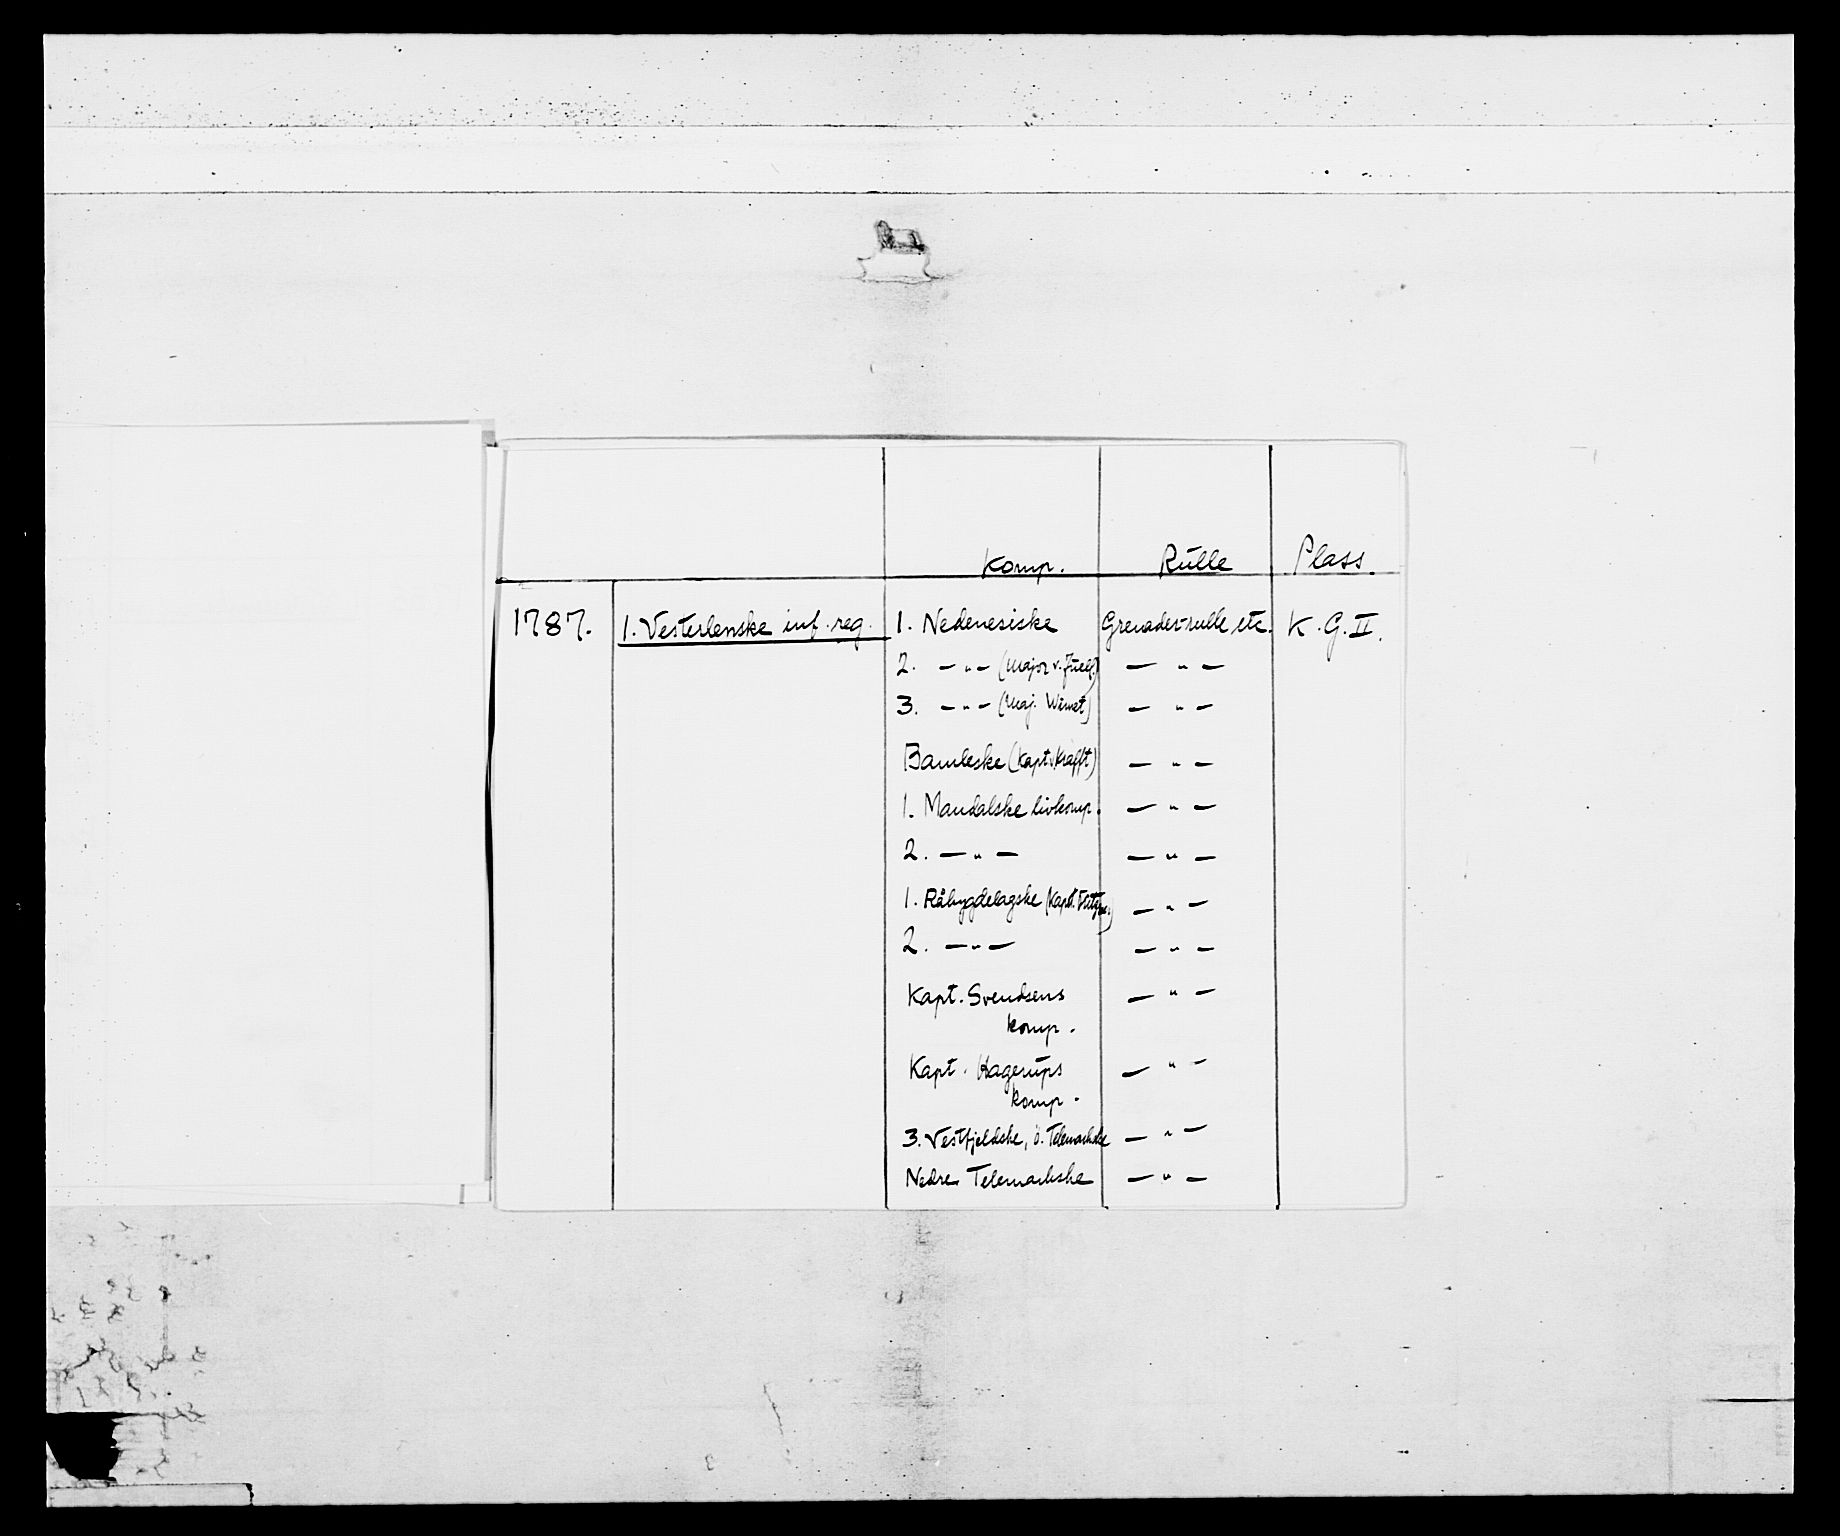 Komp. Rulle Plass.
1787. 1. Vesterlenske inf. reg. 1. Nedenesiske Grenader-rulle etc. K.G.II.
2. — " — (Major v. Juell) — " —
3. — " — (Maj. — " —
Bamleske (Kapt. v. Krafft) — " —
1. Mandalske livkomp. — " —
2. — " — — " —
1. Råbygdelagske (Kapt. — " —
2. — " — — " —
Kapt. Svendsens — " —
komp.
Kapt. Hagerups — " —
komp.
3. Vestfjeldske, ö. Telemarkske — " —
Nedre Telemarkske — " —